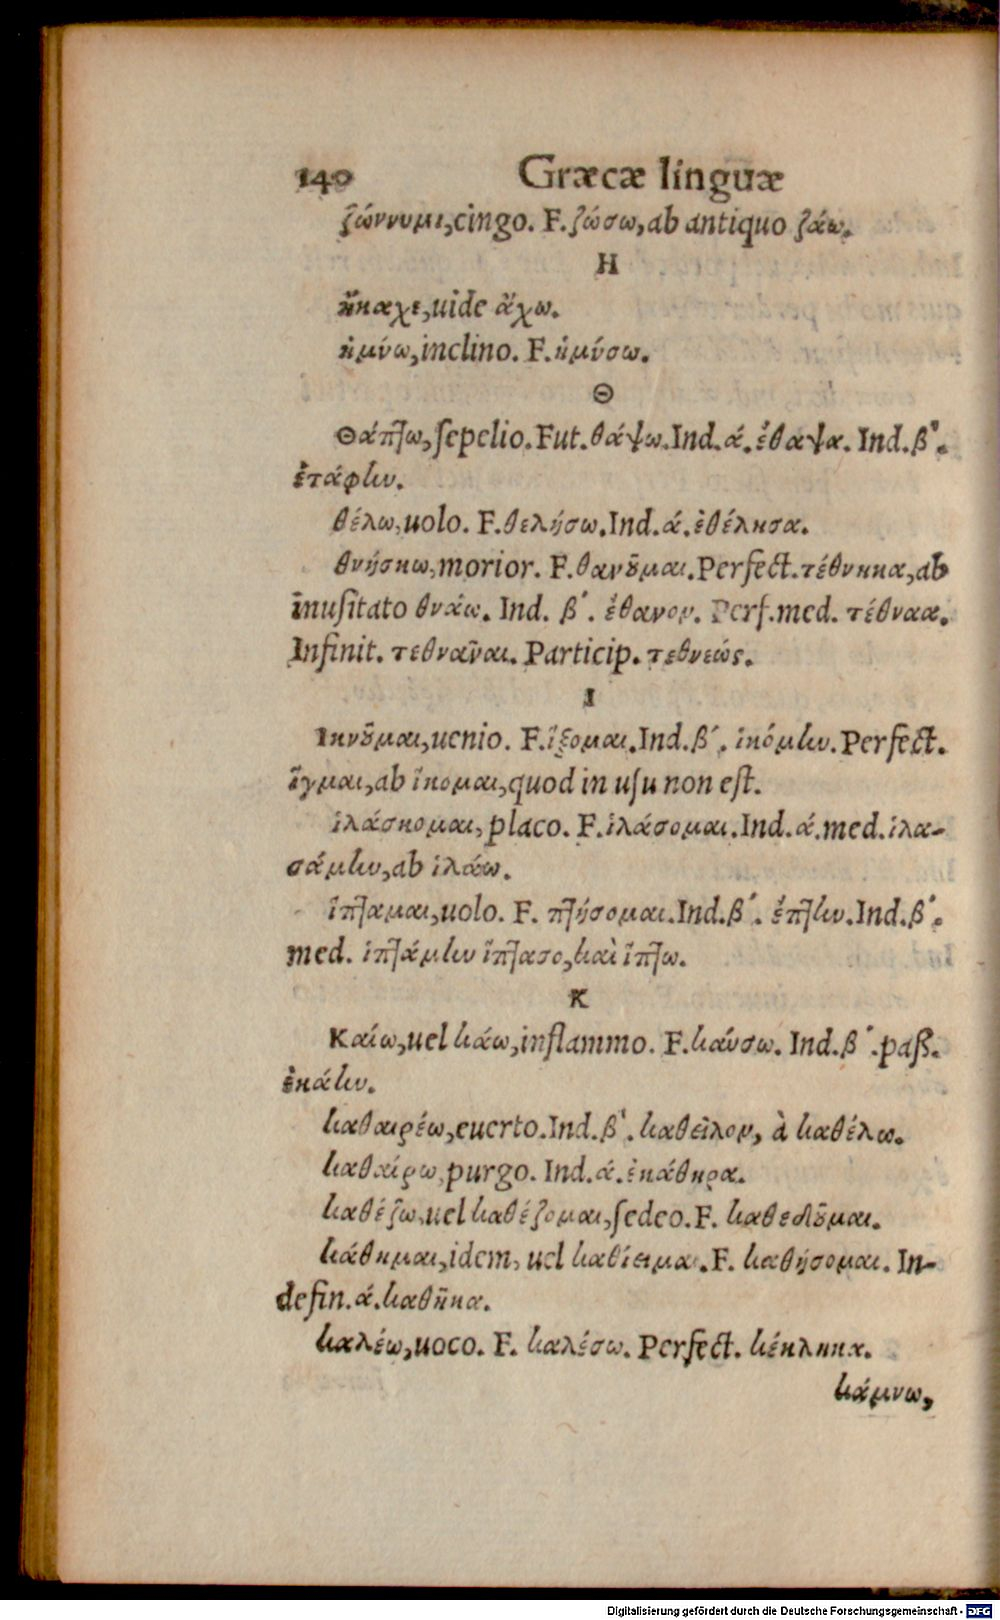 140 Græcæ linguæ
ζώννυμι, cingo. F. ζώσω, ab antiquo ζάω.
H
ἤκαχε, uide ἄχω.
ἠμύω, inclino. F. ἠμύσω.
Θ
Θάπτω, sepelio. Fut. θάψω. Ind. ά. ἔθαψα. Ind. β'.
ἐτάφην.
θέλω, uolo. F. θελήσω. Ind. ά. ἐθέλησα.
θνήσκω, morior. F. θανοῦμαι. Perfect. τέθνηκα, ab
inusitato θνάω. Ind. β'. ἔθανον. Perf. med. τέθναα.
Infinit. τεθναῖναι. Particip. τεθνεώς.
I
Ικνοῦμαι, uenio. F. ἵξομαι. Ind. β'. ἱκόμην. Perfect.
ἷγμαι, ab ἵκομαι, quod in usu non est.
ἱλάσκομαι, placo. F. ἱλάσομαι. Ind. ά. med. ἱλα-
σάμην, ab ἱλάω.
ἵπταμαι, uolo. F. πτήσομαι. Ind. β'. ἔπτην. Ind. β'.
med. ἱπτάμην ἵπτασο, καὶ ἵπτω.
K
Καίω, uel κάω, inflammo. F. καύσω. Ind. β'. paß.
ἐκάην.
καθαιρέω, euerto. Ind. β'. καθεῖλον, à καθέλω.
καθαίρω, purgo. Ind. ά. ἐκάθηρα.
καθέζω, uel καθέζομαι, sedeo. F. καθεδοῦμαι.
κάθημαι, idem, uel F. καθήσομαι. In-
defin. ά. καθῆκα.
καλέω, uoco. F. καλέσω. Perfect. κέκληκα.
κάμνω,
Digitalisierung gefördert durch die Deutsche Forschungsgemeinschaft - DFG